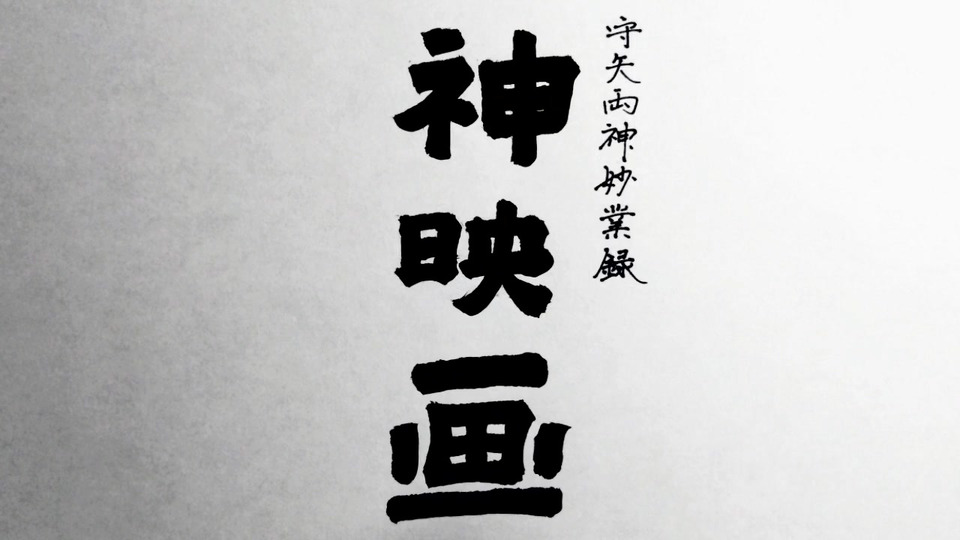 守矢両神妙業録
神映画